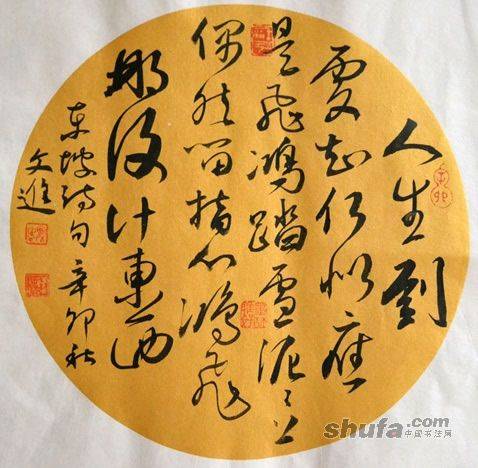 人生到
處知何似應
是飛鴻踏雪泥々上
偶然留指爪鴻飛
那復計東西
東坡詩句 辛卯秋
文進
辛卯
shufa.com
中国书法网